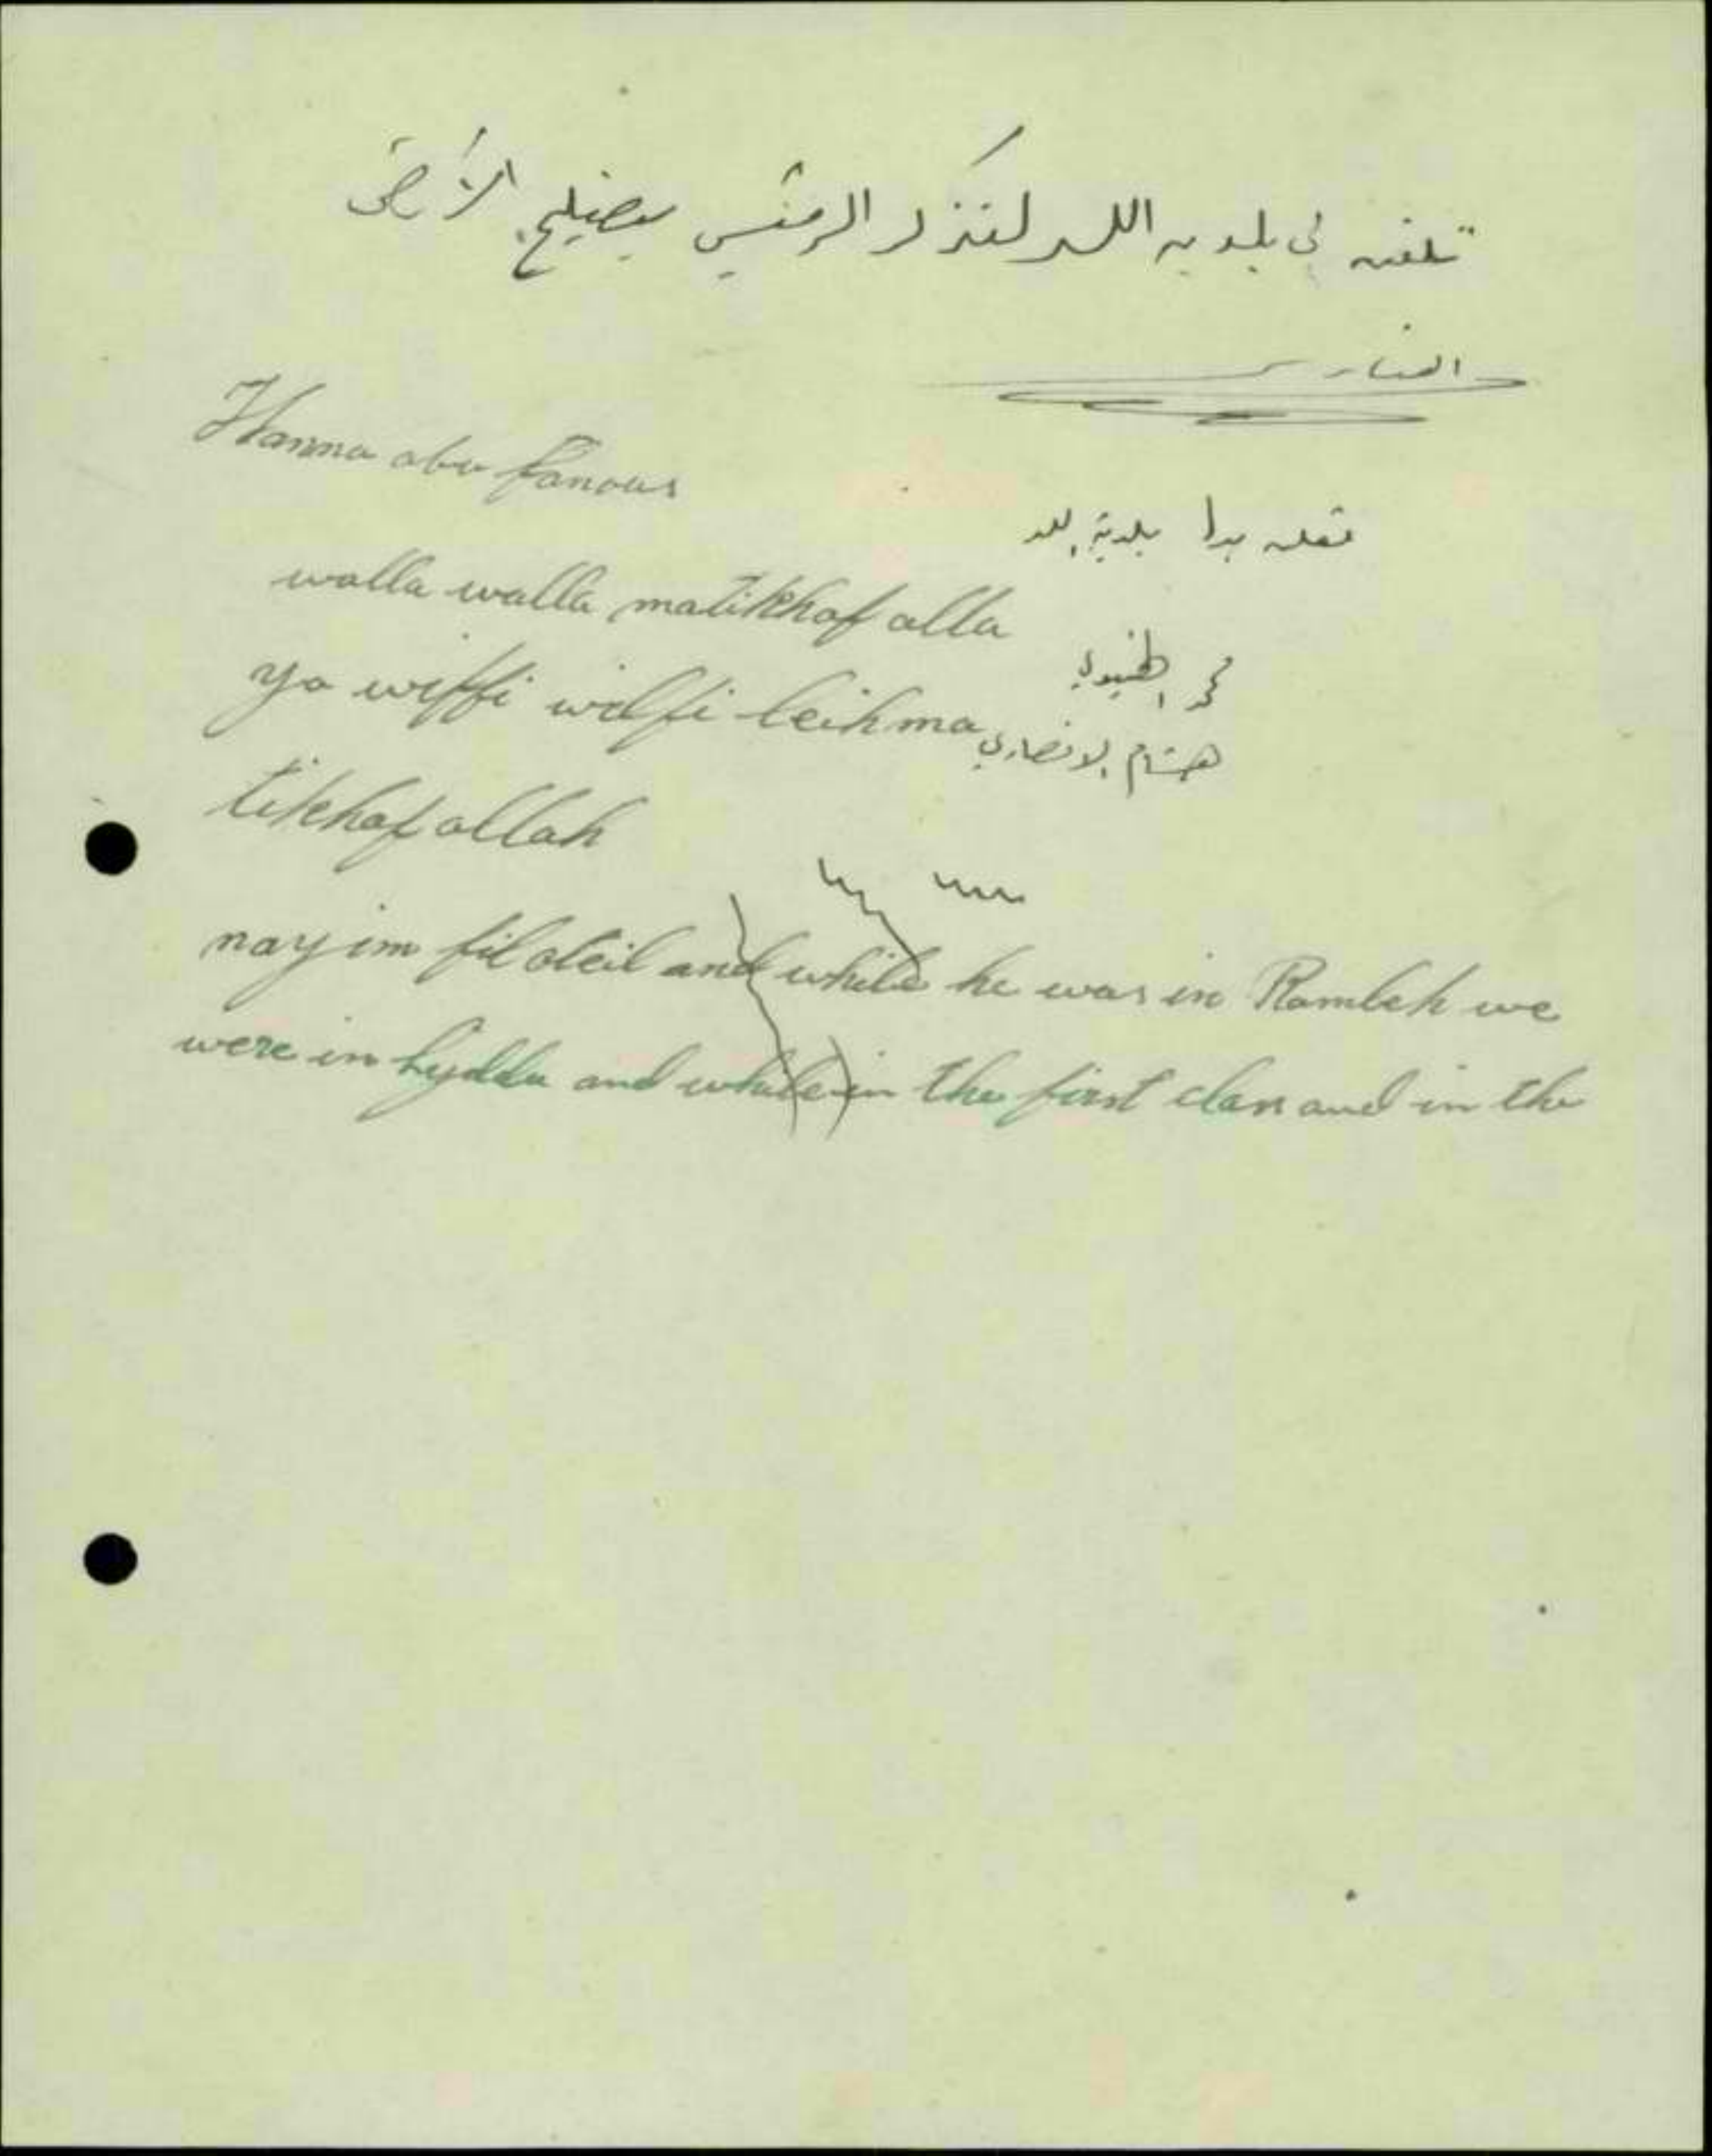 تلفن لي بلديه اللد لتذكر الرئيس بتصليح الأرض
Hanna abu fanous
بلدية اللد
walla walla matikhaf alla
محمد
ya wiffi wilfi leih ma
هشام الانصاري
tikhaf allah
nayim fil oleil and while he was in Ramleh we
were in Lydda and while in the first class and in the